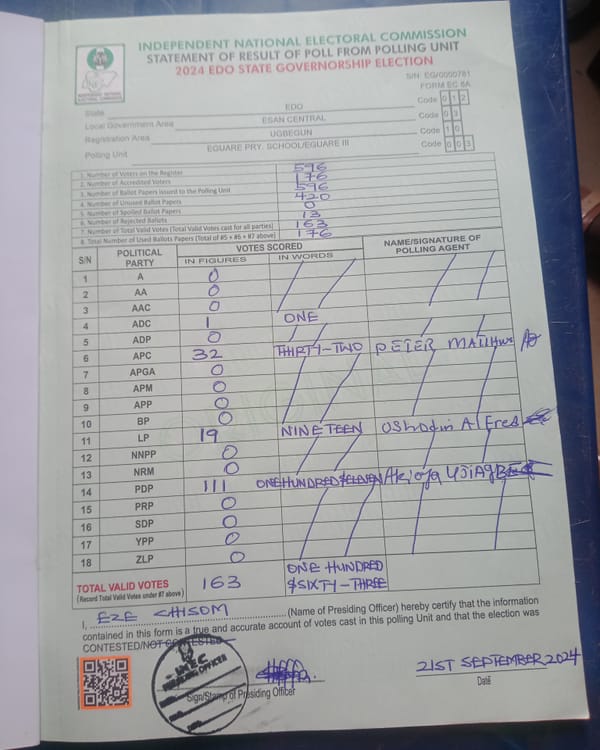 INDEPENDENT NATIONAL ELECTORAL COMMISSION
STATEMENT OF RESULT OF POLL FROM POLLING UNIT
2024 EDO STATE GOVERNORSHIP ELECTION
S/N: EG/0000781
FORM EC 8A
State EDO Code 0 1 2
Local Government Area ESAN CENTRAL Code 0 3
Registration Area UGBEGUN Code 1 0
Polling Unit EGUARE PRY. SCHOOL/EGUARE III Code 0 0 3
1. Number of Voters on the Register 596
2. Number of Accredited Voters 176
3. Number of Ballot Papers Issued to the Polling Unit 596
4. Number of Unused Ballot Papers 420
5. Number of Spoiled Ballot Papers 0
6. Number of Rejected Ballots 13
7. Number of Total Valid Votes (Total Valid Votes cast for all parties) 163
8. Total Number of Used Ballot Papers (Total of #5 + #6 + #7 above) 176
S/N POLITICAL PARTY VOTES SCORED NAME/SIGNATURE OF POLLING AGENT
IN FIGURES IN WORDS
1 A 0
2 AA 0
3 AAC 0
4 ADC 1 ONE
5 ADP 0
6 APC 32 THIRTY-TWO PETER MATTHWS
7 APGA 0
8 APM 0
9 APP 0
10 BP 0
11 LP 19 NINETEEN
12 NNPP 0
13 NRM 0
14 PDP 111 ONE HUNDRED & ELEVEN
15 PRP 0
16 SDP 0
17 YPP 0
18 ZLP 0
TOTAL VALID VOTES 163 ONE HUNDRED & SIXTY-THREE
(Record Total Valid Votes under #7 above)
I, EZE CHISOM (Name of Presiding Officer) hereby certify that the information
contained in this form is a true and accurate account of votes cast in this polling Unit and that the election was
CONTESTED/NOT CONTESTED
INEC
PRESIDING OFFICER
21ST SEPTEMBER 2024
Sign/Stamp of Presiding Officer Date